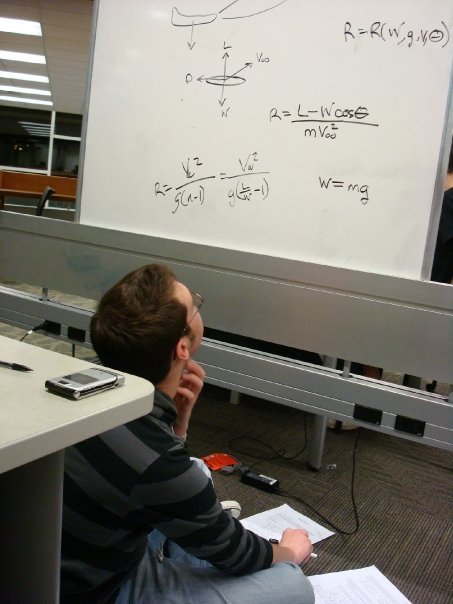 R=R(W, g, V, Θ)
L
V∞
D
W
R = (L-Wcosθ)/(mV∞²)
R = V∞²/(g(n-1)) = V∞²/(g(L/W -1))
W=mg